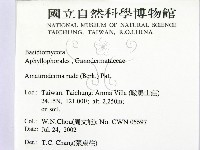 國立自然科學博物館
NATIONAL MUSEUM OF NATURAL SCIENCE
TAICHUNG, TAIWAN, R.O.CHINA
Basidiomycota
Aphyllophorales, Ganodermataceae
Amauroderma rude (Berk.) Pat.
Loc: Taiwan, Taichung, Anma Villa
24.15N, 121.00E; alt. 2,250m;
on soil.
Col: W.N.Chou(周文能) No: CWN 05697
Date: Jul 24, 2002
Det: T.C. Chang